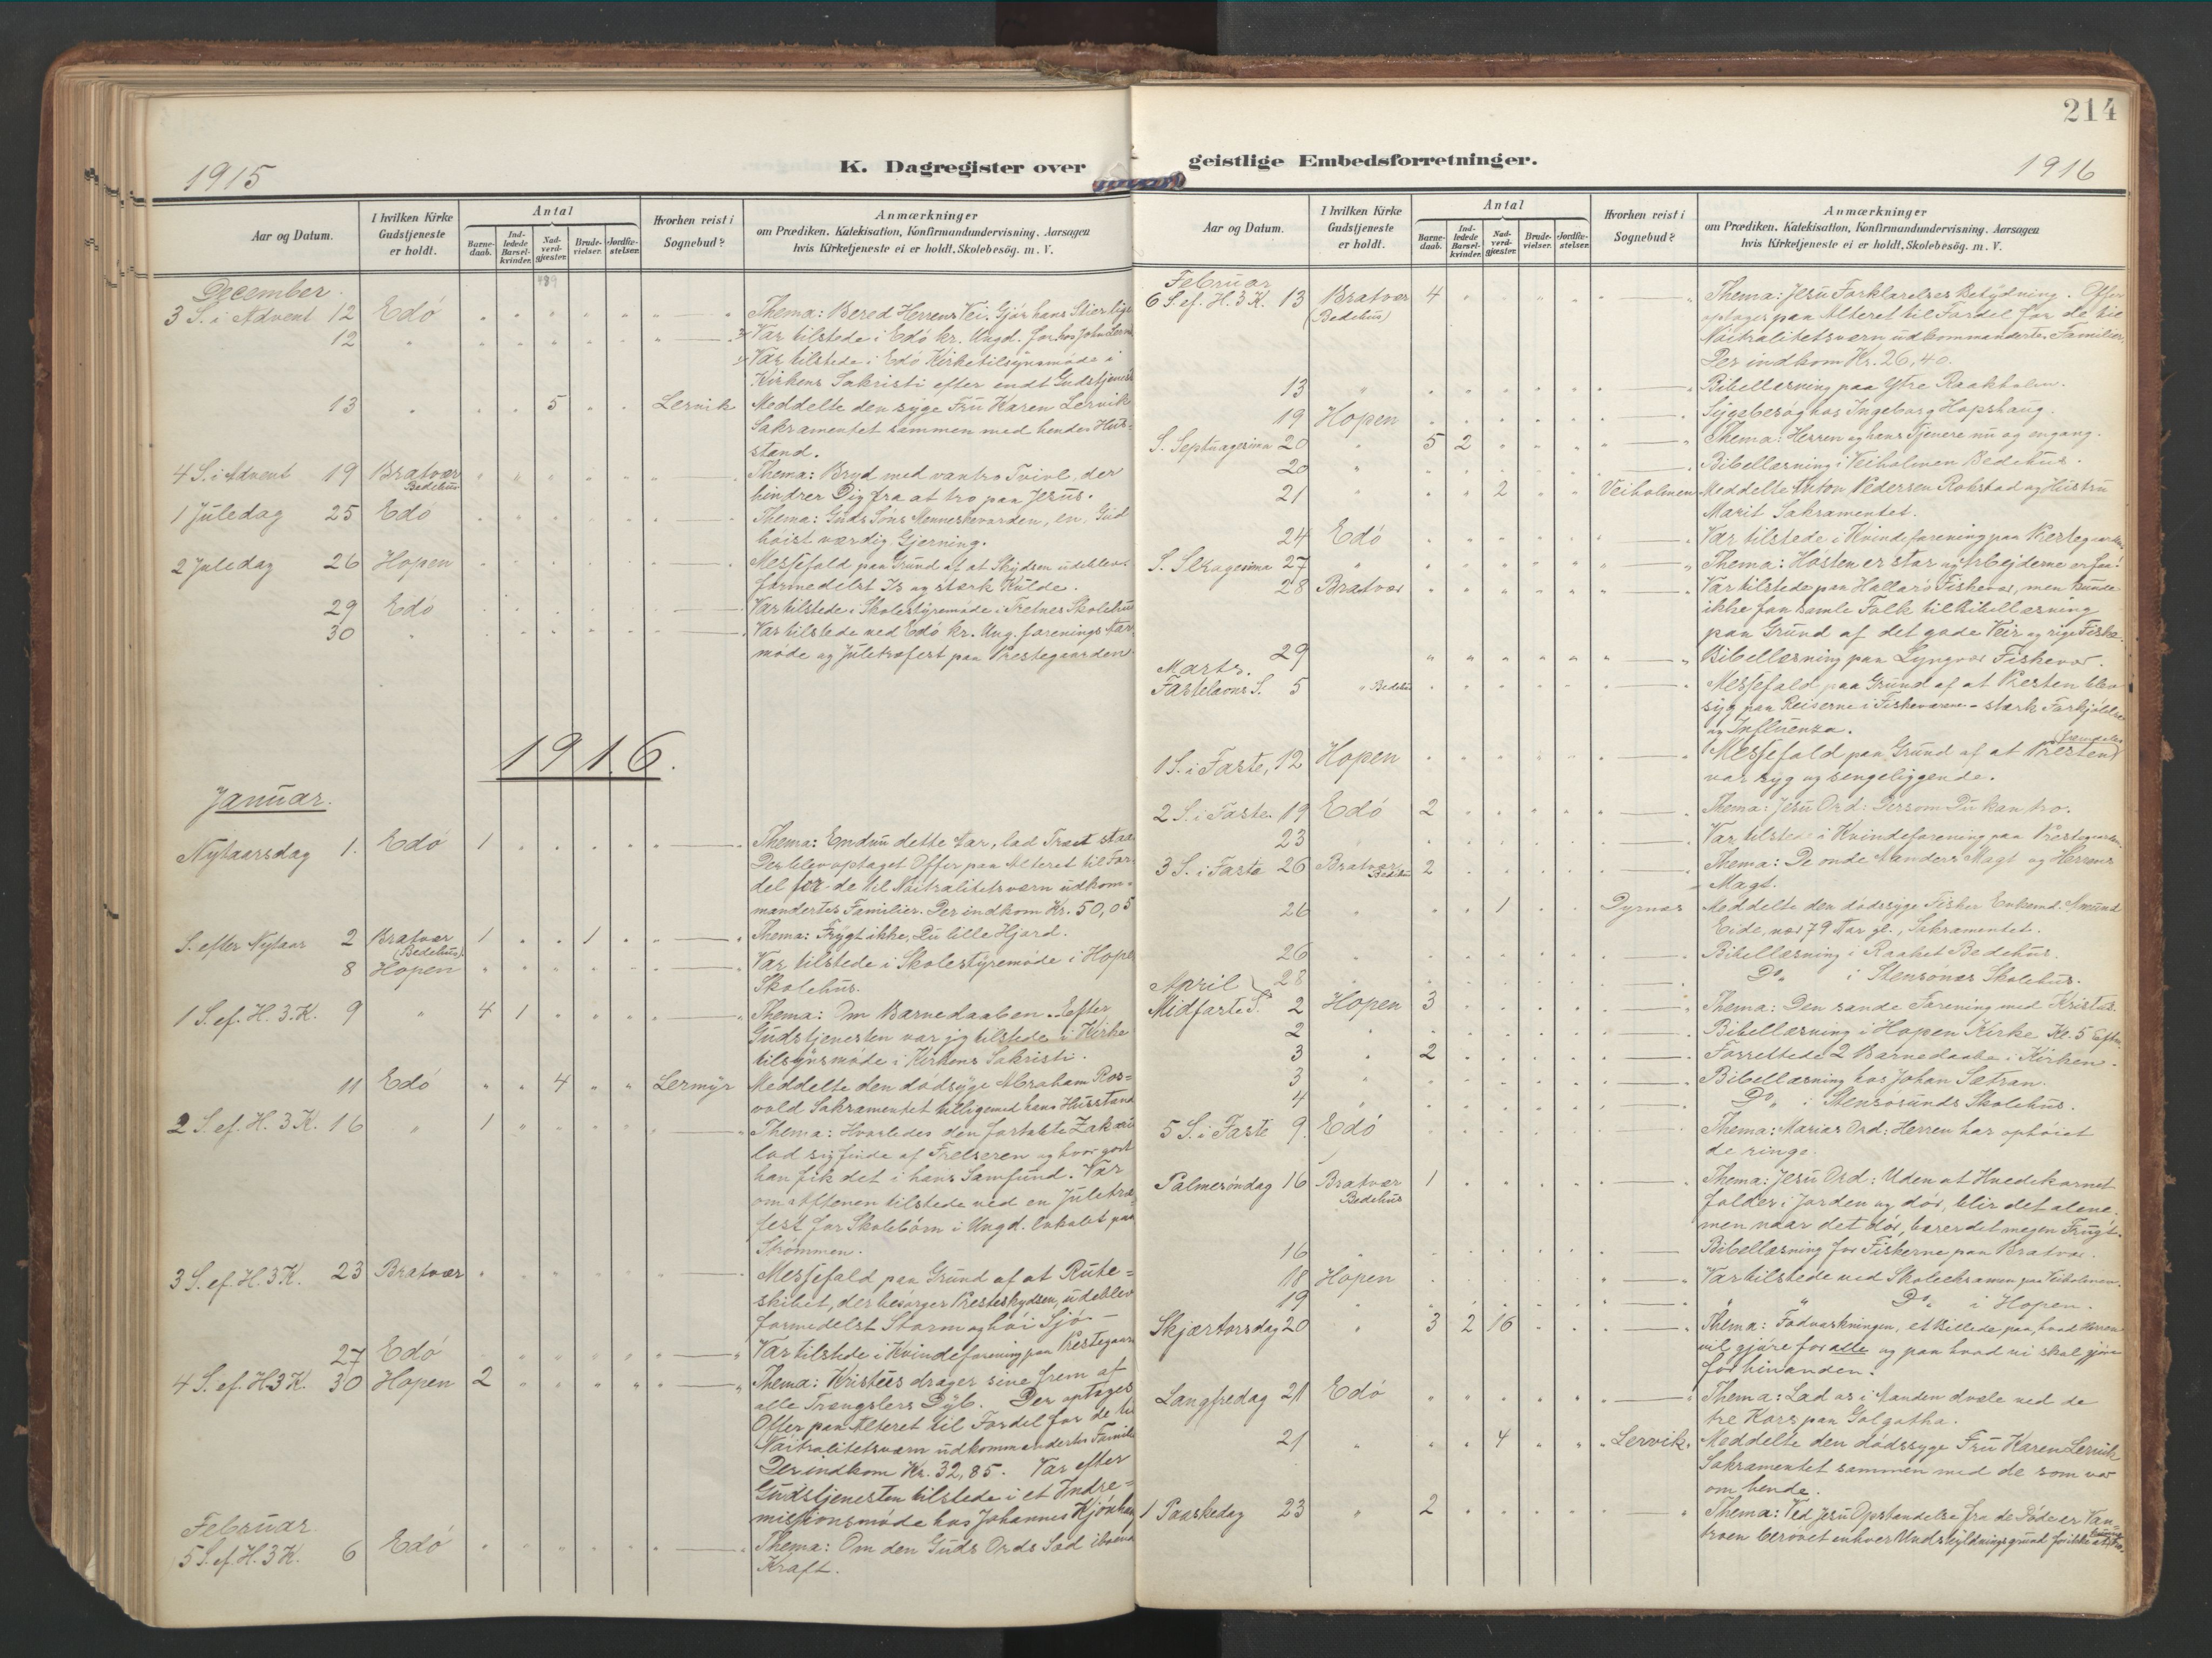 1915
K. Dagregister over
Aar og Datum.
I hvilken Kirke Gudstjeneste er holdt.
Antal
Barne-daab.
Ind-ledede Barsel-kvinder.
Nad-verd-gjæster.
Brude-vielser.
Jordfæ-stelser.
Hvorhen reist i Sognebud?
Anmærkninger
om Prædiken. Katekisation, Konfirmandundervisning. Aarsagen
hvis Kirketjeneste ei er holdt. Skolebesög. m. V.
489
December.
3 S. i Advent 12 Edö Thema: Bered Herrens Vei. Gjör hans Stier lige
12 " Var tilstede i Edö kr. Ungd. for. hos John Lervik
Var tilstede i Edö Kirketilsynsmöde i
Kirkens Sakristi efter endt Gudstjeneste
13 " 5 Lervik Meddelte den syge Fru Karen Lervik
Sakramentet sammen med hendes Hus-
stand.
4 S. i Advent 19 Bratvær Bedehus Thema: Bryd med vantro Tvivl, der
hindrer Dig fra at tro paa Jesus.
1 Juledag 25 Edö Thema: Guds Söns Menneskevorden, en Gud
höist værdig Gjerning.
2 Juledag 26 Hopen Messefald paa Grund af at Skydsen udeblev
formedelst Is og stærk Kulde.
29 Edö Var tilstede i Skolestyremöde i Tretnes Skolehus
30 " Var tilstede ved Edö kr. Ung. forenings Aar-
möde og Juletræfest paa Prestegaarden
1916.
Januar.
Nytaarsdag 1. Edö 1 Thema: Endnu dette Aar, lad Træet staa
Der blev optaget Offer paa Alteret til For-
del for de til Nöitralitetsværn udkom-
mandertes Familier. Der indkom Kr. 50,05
S. efter Nytaar 2 Bratvær (Bedehus) 1 1 Thema: Frygt ikke, Du lille Hjord.
8 Hopen Var tilstede i Skolestyremöde i Hope
Skolehus.
1 S. ef. H. 3. K. 9 " 4 1 Thema: Om Barnedaaben. Efter
Gudstjenesten var jeg tilstede i Kirke
tilsynsmöde i Kirkens Sakristi.
11 Edö 4 Lermyr Meddelte den dödsyge Abraham Ros-
vold Sakramentet tilligemed hans Husstand
2 S. ef. H. 3 K. 16 " 1 Thema: Hvorledes den fortabte Zakæus
lod sig finde af Frelseren og hvor godt
han fik det i hans Samfund. Var
om Aftenen tilstede ved en Juletræ-
fest for Skolebörn i Ungd. lokalet paa
Strömmen.
3 S. ef. H. 3 K. 23 Bratvær Messefald paa Grund af at Rute-
skibet, der besörger Presteskydsen, udeblev
formedelst Storm og höi Sjö.
27 Edö Var tilstede i Kvindeforening paa Prestegaard
4 S. ef. H 3 K. 30 Hopen 2 Thema: Kristus drager sine frem af
alle Trængslers Dyb. Der optoges
Offer paa Alteret til Fordel for de til
Nöitralitetsværn udkommandertes Famili
Der indkom Kr. 32,85. Var efter
Gudstjenesten tilstede i et Indre-
missionsmöde hos Johannes Kjönhaug
Februar.
5 S. ef. H. 3 K. 6 Edö Thema: Om den Guds Ords Sæd iboende
Kraft.
214
geistlige Embedsforretninger.
1916
Aar og Datum.
I hvilken Kirke Gudstjeneste er holdt.
Antal
Barne-daab.
Ind-ledede Barsel-kvinder.
Nad-verd-gjæster.
Brude-vielser.
Jordfæ-stelser.
Hvorhen reist i Sognebud?
Anmærkninger
om Prædiken. Katekisation, Konfirmandundervisning. Aarsagen
hvis Kirketjeneste ei er holdt. Skolebesög. m. V.
Februar
6 S. ef. H. 3 K. 13 Bratvær (Bedehus) 4 Thema: Jesu Forklarelses Betydning. Offer
optoges paa Alteret til Fordel for de til
Nöitralitetsværn udkommandertes Familier
Der indkom Kr. 26,40.
13 " Bibellæsning paa Ytre Raakholm.
19 Hopen Sygebesög hos Ingeborg Hopshaug.
S. Septuagesima 20 " 5 2 Thema: Herren og hans Tjenere nu og engang.
20 " Bibellæsning i Veiholmen Bedehus.
21 " 2 Veiholmen Meddelte Anton Pedersen Rokstad og Hustru
Marit Sakramentet.
24 Edö Var tilstede i Kvindeforening paa Prestegaarden
S. Sexagesima 27 " Thema: Hösten er stor og Arbejderne er faa!
28 Bratvær Var tilstede paa Hallarö Fiskevær, men kunde
ikke faa samle Folk til Bibellæsning
paa Grund af det gode Veir og rige Fiske.
29 Bibellæsning paa Lyngvær Fiskevær.
Marts.
Fastelavns S. 5 " Bedehus Messefald paa Grund af at Presten blev
syg paa Reiserne i Fiskeværene - stærk Forkjölelse
og Influenza.
1 S. i Faste, 12 Hopen Messefald paa Grund af at Presten (fremdeles)
var syg og sengeliggende.
2 S. i Faste 19 Edö 2 Thema: Jesu Ord: Dersom Du kan tro.
23 Var tilstede i Kvindeforening paa Prestegaarden.
3 S. i Faste 26 Bratvær Bedehus 2 Thema: De onde Aanders Magt og Herrens
Magt.
26 " 1 Dyrnæs Meddelte den dödssyge Fisker Enkemd. Amund
Eide, nær 79 Aar gl., Sakramentet.
26 Bibellæsning i Raaket Bedehus.
28 Do. i Stensönes Skolehus.
April
Midfaste S. 2 Hopen 3 Thema: Den sande Forening med Kristus.
2 " Bibellæsning i Hopen Kirke Kl. 5 Eftm.
3 " 2 Forrettede 2 Barnedaabe i Kirken.
3 " Bibellæsning hos Johan Sætran.
4 " Do. i Stensösunds Skolehus.
5 S. i Faste 9. Edö Thema: Marias Ord: Herren har ophöiet
de ringe.
Palmesöndag 16 Bratvær Bedehus 1 Thema: Jesu Ord: Uden at Hvedekornet
falder i Jorden og dör, blir det alene.
men naar det dör, bærer det megen Frugt.
16 " Bibellæsning for Fiskerne paa Bratvær.
18 Hopen Var tilstede ved Skoleeksamen paa Veiholmen.
19 " Do. i Hopen.
Skjærtorsdag 20 " 3 2 16 Thema: Fodvaskningen, et Billede paa, hvad Herren
vil gjöre for alle og paa hvad vi skal gjöre
for hinanden.
Langfredag 21 Edö Thema: Lad os i Aanden dvæle ved de
tre Kors paa Golgatha.
21 " 4 Lervik. Meddelte den dödssyge Fru Karen Lervik
Sakramentet sammen med de som var
om hende.
1 Paaskedag 23 " 2 Thema: Ved Jesu Opstandelse fra de Döde er Van-
troen berövet enhver Undskyldningsgrund for ikke at tro.